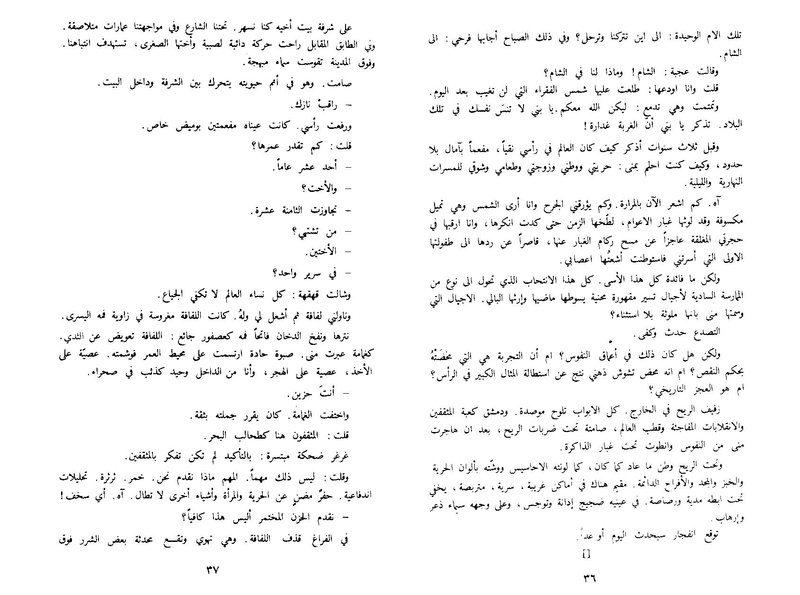 تلك الام الوحيدة : الى اين تتركنا وترحل؟ وفي ذلك الصباح أجابها فرحي : الى
الشام .
وقالت عجبة : الشام ! وماذا لنا في الشام؟
قلت وانا اودعها : طلعت عليها شمس الفقراء التي لن تغيب بعد اليوم .
وتمتمت وهي تدمع : ليكن الله معكم . يا بني لا تنسَ نفسك في تلك
البلاد . تذكر يا بني أنّ الغربة غدارة !
وقبل ثلاث سنوات أذكر كيف كان العالم في رأسي نقياً ، مفعماً بآمال بلا
حدود ، وكيف كنت احلم بمنى : حريتي ووطني وزوجتي وطعامي وشوقي للمسرات
النهارية والليلية .
آه . كم اشعر الآن بالمرارة . وكم يؤرقني الجرح وانا أرى الشمس وهي تميل
مكسوفة وقد لوثها غبار الاعوام ، لطّخها الزمن حتى كدت انكرها ، وانا ارقبها في
حجرتي المغلقة عاجزاً عن مسح ركام الغبار عنها ، قاصراً عن ردها الى طفولتها
الاولى التي أسرتني فاستوطنت أشعتُها اعصابي .
ولكن ما فائدة كل هذا الأسى . كل هذا الانتحاب الذي تحول الى نوع من
الممارسة السادية لأجيال تسير مقهورة محنية يسوطها ماضيها وإرثها البالي . الاجيال التي
وسمتها منى بانها ملوثة بلا استثناء؟
التصدع حدث وكفى .
ولكن هل كان ذلك في أعماق النفوس؟ ام أن التجربة هي التي
بحكم النقص؟ ام انه محض تشوش ذهني نتج عن استطالة المثال الكبير في الرأس؟
ام هو العجز التاريخي؟
زفيف الريح في الخارج . كل الابواب تلوح موصدة . ودمشق كعبة المثقفين
والانقلابات المفاجئة وقطب العالم ، صامتة تحت ضربات الريح ، بعد ان هاجرت
منى من النفوس وانطوت تحت غبار الذاكرة .
وتحت الريح وطن ما عاد كما كان ، كما لونته الاحاسيس ووشّته بألوان الحرية
والخبز والمجد والأفراح الدائمة . مقيم هناك في أماكن غريبة ، سرية ، متربصة ، يخفي
تحت ابطه مدية ورصاصة . في عينيه ضجيج إدانة وتوجس ، وعلى وجهه سيماء ذعر
وإرهاب .
توقع انفجار سيحدث اليوم أو غداً .
[]
٣٦
على شرفة بيت أخيه كنا نسهر . تحتنا الشارع وفي مواجهتنا عمارات متلاصقة .
وفي الطابق المقابل راحت حركة دائبة لصبية وأختها الصغرى ، تستهدف انتباهنا .
وفوق المدينة تقوست سماء مبهجة .
صامت . وهو في أتم حيويته يتحرك بين الشرفة وداخل البيت .
– راقبْ نازك .
ورفعت رأسي . كانت عيناه مفعمتين بوميض خاص .
قلت : كم تقدر عمرها؟
– أحد عشر عاماً .
– والأخت؟
– تجاوزت الثامنة عشرة .
– من تشتهي؟
– الأختين .
– في سرير واحد؟
وشالت قهقهة : كل نساء العالم لا تكفي الجياع .
وناولني لفافة ثم أشعل لي ولهُ . كانت اللفافة مغروسة في زاوية فمه اليسرى .
نترها ونفخ الدخان فاتحاً فمه كعصفور جائع : اللفافة تعويض عن الثدي .
كغمامة عبرت منى . صبوة حادة ارتسمت على محيط العمر فوشمته . عصيّة على
الأخذ ، عصية على الهجر ، وأنا من الداخل وحيد كذئب في صحراء .
– أنتَ حزين .
واختفت الغمامة . كان يقرر جملته بثقة .
قلت : المثقفون هنا كطحالب البحر .
غرغر ضحكة مبتسرة : بالتأكيد لم تكن تفكر بالمثقفين .
وقلت : ليس ذلك مهماً . المهم ماذا نقدم نحن . خمر . ثرثرة . تحليلات
اندفاعية . حفرٌ مضنٍ عن الحرية والمرأة وأشياء أخرى لا تطال . آه . أي سخف !
– نقدم الحزنَ المختمر أليس هذا كافياً؟
في الفراغ قذف اللفافة . وهي تهوي وتقسع محدثة بعض الشرر فوق
٣٧